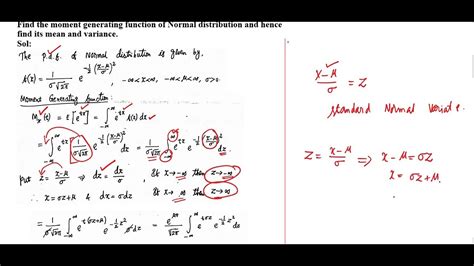 Find the moment generating function of Normal distribution and hence
find its mean and variance.
Sol:
The p.d.f. of Normal distribution is given by.
f(x) = 1/(σ√2π) e^(-½((x-μ)/σ)²) , -∞<x<∞, -∞<μ<∞, σ>0.
Moment Generating function:
Mₓ(t) = E[e^(tx)] = ∫_{-∞}^{∞} e^(tx) f(x) dx
= ∫_{-∞}^{∞} e^(tx) 1/(σ√2π) e^(-½((x-μ)/σ)²) dx = 1/(σ√2π) ∫_{-∞}^{∞} e^(tx) e^(-½((x-μ)/σ)²) dx
put z = (x-μ)/σ ⇒ dz = dx/σ
If x→-∞ then z→-∞
∴ x = σz+μ & dx = σdz
If x→∞ then z→∞
= 1/(σ√2π) ∫_{-∞}^{∞} e^(t(σz+μ)) e^(-½z²) σdz = e^(μt)/√2π ∫_{-∞}^{∞} e^(tσz) e^(-½z²) dz
(x-μ)/σ = Z
standard Normal Variate.
Z = (x-μ)/σ ⇒ x-μ = σZ
x = σZ+μ.